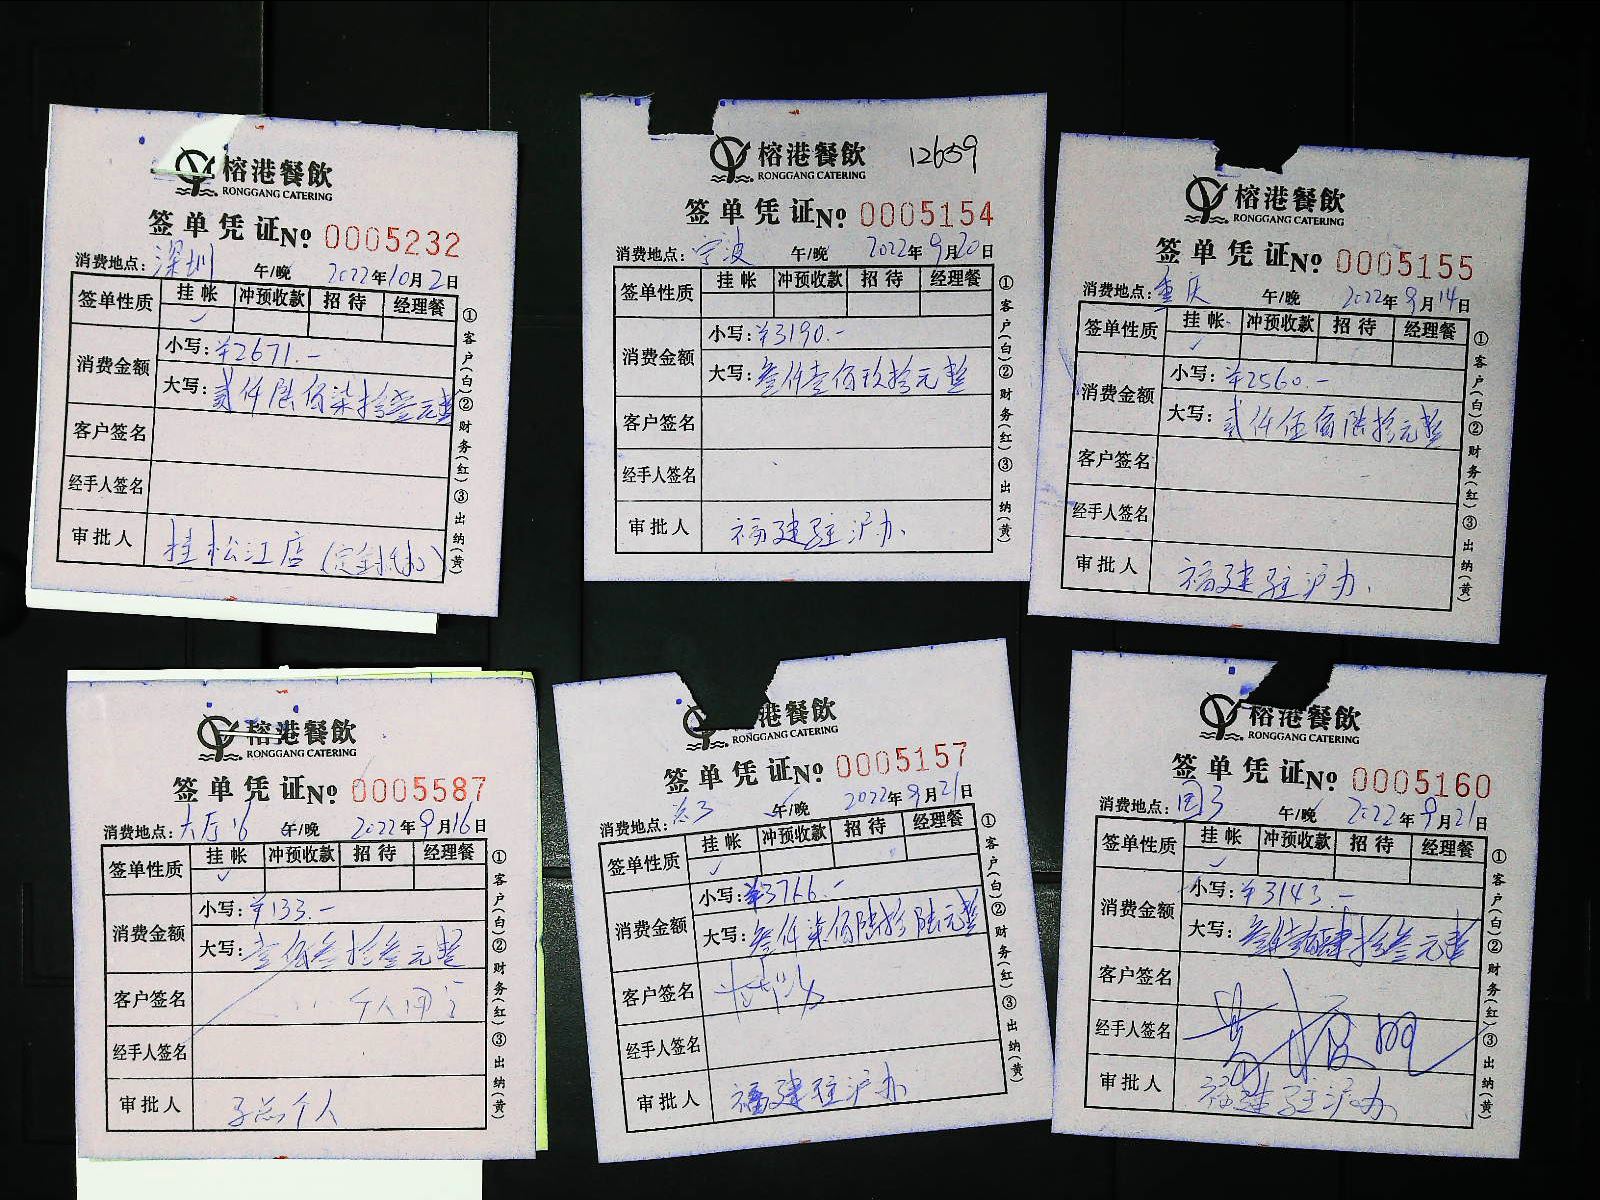 榕港餐飲
RONGGANG CATERING
签单凭证No 0005232
消费地点:深圳 午/晚 2022年10月2日
签单性质 挂帐 冲预收款 招待 经理餐
✓
消费金额 小写:¥2671.-
大写:贰仟陆佰柒拾壹元整
客户签名
经手人签名
审批人 挂松江店
①客户(白)②财务(红)③出纳(黄)
榕港餐飲 12659
RONGGANG CATERING
签单凭证No 0005154
消费地点:宁波 午/晚 2022年9月20日
签单性质 挂帐 冲预收款 招待 经理餐
消费金额 小写:¥3190.-
大写:叁仟壹佰玖拾元整
客户签名
经手人签名
审批人 福建驻沪办.
①客户(白)②财务(红)③出纳(黄)
榕港餐飲
RONGGANG CATERING
签单凭证No 0005155
消费地点:重庆 午/晚 2022年9月14日
签单性质 挂帐 冲预收款 招待 经理餐
✓
消费金额 小写:¥2560.-
大写:贰仟伍佰陆拾元整
客户签名
经手人签名
审批人 福建驻沪办.
①客户(白)②财务(红)③出纳(黄)
榕港餐飲
RONGGANG CATERING
签单凭证No 0005587
消费地点:大厅16 午/晚 2022年9月16日
签单性质 挂帐 冲预收款 招待 经理餐
✓
消费金额 小写:¥133.-
大写:壹佰叁拾叁元整
客户签名
经手人签名
审批人 个人
①客户(白)②财务(红)③出纳(黄)
港餐飲
RONGGANG CATERING
签单凭证No 0005157
消费地点: 午/晚 2022年9月21日
签单性质 挂帐 冲预收款 招待 经理餐
✓
消费金额 小写:¥3766.-
大写:叁仟柒佰陆拾陆元整
客户签名
经手人签名
审批人 福建驻沪办
①客户(白)②财务(红)③出纳(黄)
榕港餐飲
RONGGANG CATERING
签单凭证No 0005160
消费地点: 午/晚 2022年9月21日
签单性质 挂帐 冲预收款 招待 经理餐
✓
消费金额 小写:¥3143.-
大写:叁仟壹佰肆拾叁元整
客户签名
经手人签名
审批人 福建驻沪办
①客户(白)②财务(红)③出纳(黄)